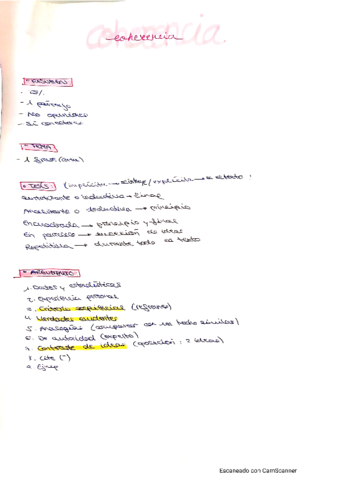 coherencia
coherencia
* RESUMEN:
- 25%
- 1 párrafo
- No opiniones
- Sí conectores
* TEMA:
- 1 frase (corta)
* TESIS: (implícita → / explícita → texto):
Sintetizante o inductiva → final
Analizante o deductiva → principio
Encuadrada → principio y final
En paralelo → sucesión de ideas
Repetitiva → durante todo el texto
* ARGUMENTO:
1. Datos y estadísticas
2. Experiencia personal
3. Criterio (refranes)
4. Verdades evidentes
5. Analogías (comparar con un hecho similar)
6. De autoridad (experto)
7. Contraste de ideas (oposición: 2 ideas)
8. Cita (")
9. Ejemp
Escaneado con CamScanner